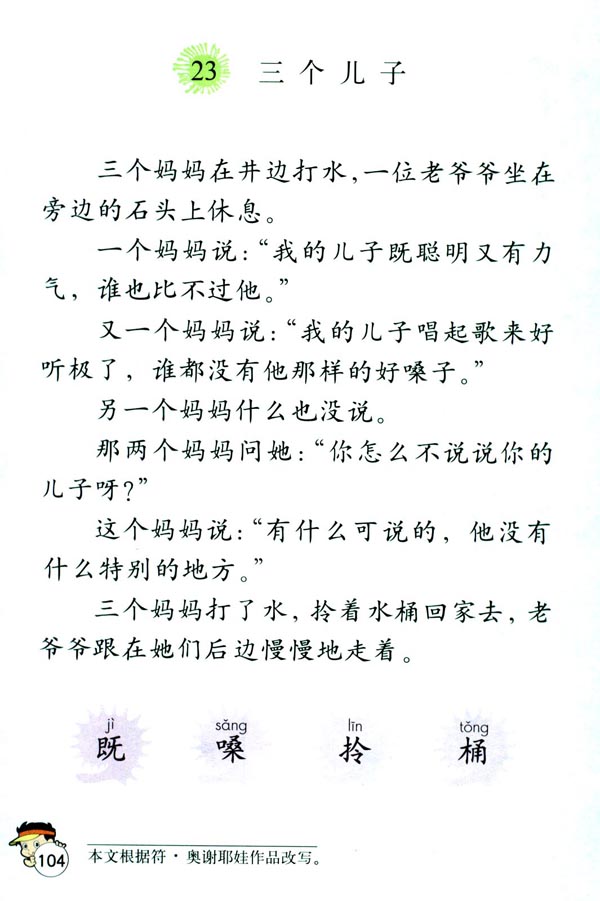 23 三个儿子
三个妈妈在井边打水，一位老爷爷坐在
旁边的石头上休息。
一个妈妈说：“我的儿子既聪明又有力
气，谁也比不过他。”
又一个妈妈说：“我的儿子唱起歌来好
听极了，谁都没有他那样的好嗓子。”
另一个妈妈什么也没说。
那两个妈妈问她：“你怎么不说说你的
儿子呀？”
这个妈妈说：“有什么可说的，他没有
什么特别的地方。”
三个妈妈打了水，拎着水桶回家去，老
爷爷跟在她们后边慢慢地走着。
jì sǎng līn tǒng
既 嗓 拎 桶
本文根据符·奥谢耶娃作品改写。
104